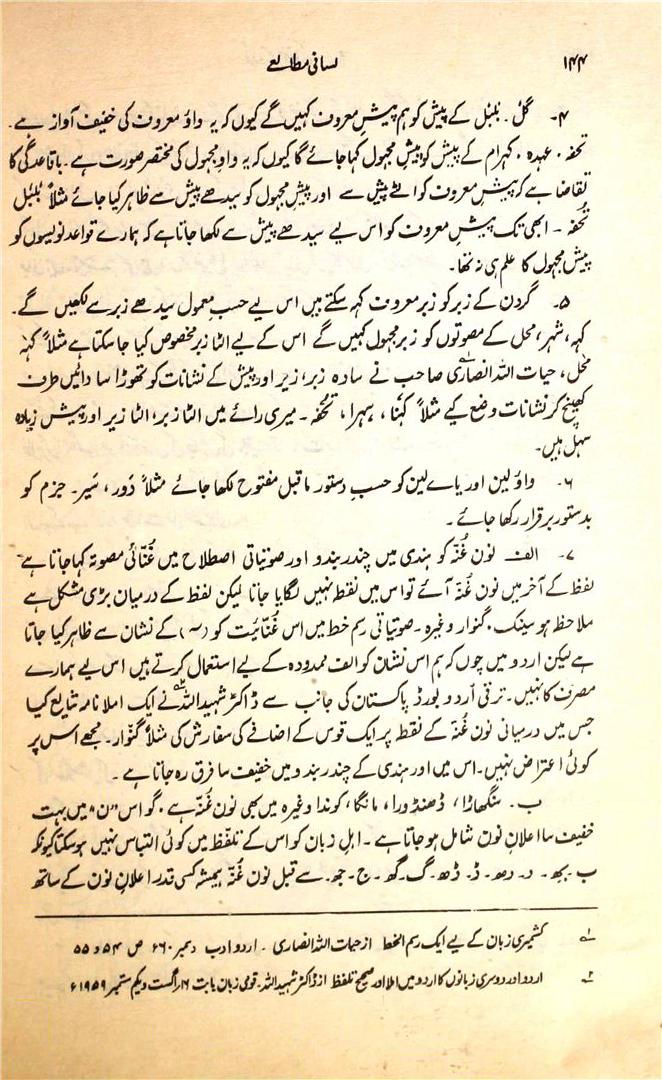 ۱۴۴
لسانی مطالعے
۴۔ گُل۔ بُلبُل کے پیش کو ہم پیشِ معروف کہیں گے کیوں کہ یہ واؤ معروف کی خفیف آواز ہے۔
تحفہ، عہدہ، کہرام کے پیش کو پیشِ مجہول کہا جائے گا کیوں کہ یہ واوِ مجہول کی مختصر صورت ہے۔ باقاعدگی کا
تقاضا ہے کہ پیشِ معروف کو الٹے پیش سے اور پیشِ مجہول کو سیدھے پیش سے ظاہر کیا جائے مثلاً بُلبُل
تُحفہ ۔ ابھی تک پیشِ معروف کو اس لیے سیدھے پیش سے لکھا جاتا ہے کہ ہمارے قواعد نویسوں کو
پیش مجہول کا علم ہی نہ تھا۔
۵۔ گردن کے زبر کو زبر معروف کہہ سکتے ہیں اس لیے حسبِ معمول سیدھے زبر سے لکھیں گے۔
کہہ، شہر، محل کے مصوتوں کو زبر مجہول کہیں گے اس کے لیے الٹا زبر مخصوص کیا جا سکتا ہے مثلاً کہہ
محل، حیات اللہ انصاری صاحب نے سادہ زبر، زیر اور پیش کے نشانات کو تھوڑا سا دائیں طرف
کھینچ کر نشانات وضع کیے مثلاً کہنا، بہرا، تحفہ۔ میری رائے میں الٹا زبر، الٹا زیر اور پیش زیادہ
سہل ہیں۔
۶۔ واؤ لین اور یائے لین کو حسبِ دستور ماقبل مفتوح لکھا جائے مثلاً دَور، سَیر۔ جزم کو
بدستور برقرار رکھا جائے۔
۷۔ الف نون غُنّہ کو ہندی میں چندر بندو اور صوتیاتی اصطلاح میں غُنّائی مصوتہ کہا جاتا ہے
لفظ کے آخر میں نون غُنّہ آئے تو اس میں نقطہ نہیں لگایا جاتا لیکن لفظ کے درمیان بڑی مشکل ہے
ملاحظہ ہو سینک، گنوار وغیرہ۔ صوتیاتی رسم خط میں اس غُنّائیت کو (~) کے نشان سے ظاہر کیا جاتا
ہے لیکن اردو میں چوں کہ ہم اس نشان کو الف ممدودہ کے لیے استعمال کرتے ہیں اس لیے ہمارے
مصرف کا نہیں۔ ترقی اُردو بورڈ پاکستان کی جانب سے ڈاکٹر شہید اللہ نے ایک املا نامہ شایع کیا
جس میں درمیانی نون غُنّہ کے نقطہ پر ایک قوس کے اضافے کی سفارش کی مثلاً گنوار۔ مجھے اس پر
کوئی اعتراض نہیں۔ اس میں اور ہندی کے چندر بندو میں خفیف سا فرق رہ جاتا ہے۔
ب۔ سنگھاڑا، ڈھنڈورا، مانگا، کوندا وغیرہ میں بھی نون غُنّہ ہے۔ گو اس "ن" میں بہت
خفیف سا اعلانِ نون شامل ہو جاتا ہے۔ اہلِ زبان کو اس کے تلفّظ میں کوئی التباس نہیں ہو سکتا کیونکہ
ب۔ بھ۔ د۔ دھ۔ ڈ۔ ڈھ۔ گ۔ گھ۔ ج۔ جھ۔ سے قبل نون غُنّہ ہمیشہ کسی قدر اعلانِ نون کے ساتھ
۱؎ کشمیری زبان کے لیے ایک رسم الخط از حیات اللہ انصاری۔ اردو ادب دسمبر ۶۶۰ ص ۵۴ و ۵۵
۲؎ اردو اور دوسری زبانوں کا اردو میں املا اور صحیح تلفظ از ڈاکٹر شہید اللہ۔ قومی زبان بابت ۱۶ اگست و یکم ستمبر ۱۹۵۹ء